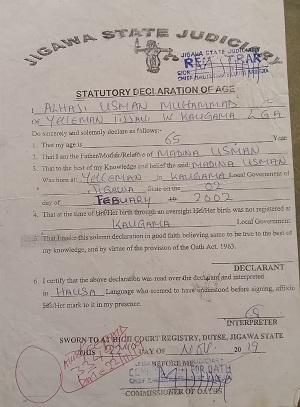 JIGAWA STATE JUDICIARY
JIGAWA STATE JUDICIARY
REGISTRAR
STATUTORY DECLARATION OF AGE
I, ALHAJI USMAN MUHAMMAD
of YELLEMAN TIJJANI W KAUGAMA LGA
Do sincerely and solemnly declare as follows:-
1. That my age is 65 Year
2. That I am the Father/Mother/Relative of MADINA USMAN
3. That to the best of my Knowledge and belief the said MADINA USMAN
Was born at: YELLEMAN in KAUGAMA Local Government of
JIGAWA State on the 02
day of FEBUARY 2002
4. That at the time of His/Her birth through an oversight His/Her birth was not registered at
KAUGAMA Local Government
5. That I make this solemn declaration in good faith believing same to be true to the best of
my knowledge, and by virtue of the provision of the Oath Act. 1963.
DECLARANT
6. I certify that the above declaration was read over the declarant and interpreted
in HAUSA Language who seemed to have understood before signing, affixing
His/Her mark to it in my presence.
INTERPRETER
SWORN TO AT HIGH COURT REGISTRY, DUTSE, JIGAWA STATE
THIS DAY OF NOV. 2019
BEFORE ME
COMMISSIONER OF OATHS